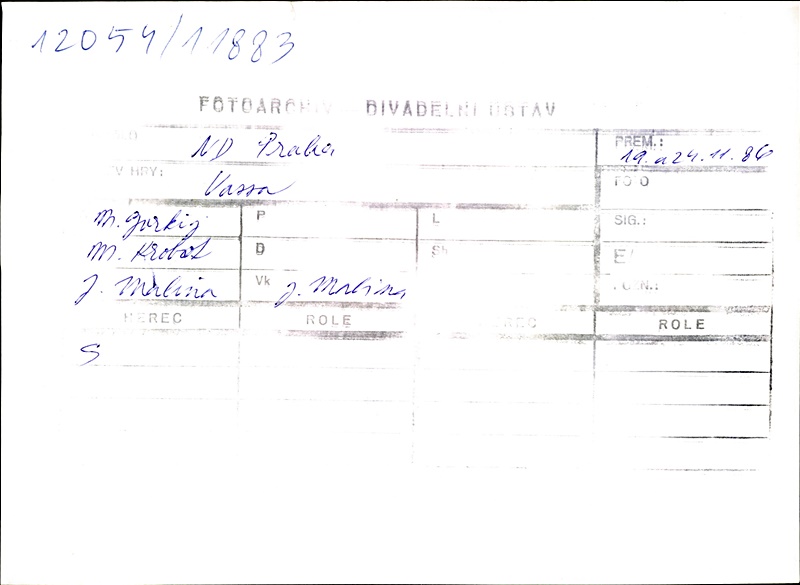 12054/11883
FOTOARCHIV DIVADELNÍ ÚSTAV
ND Praha PREM.: 19. a 24.11.86
HRY: Vassa FOTO
M. Gorkij P L SIG.:
M. Krobot D
J. Malina Vk J. Malina
HEREC ROLE HEREC ROLE
S